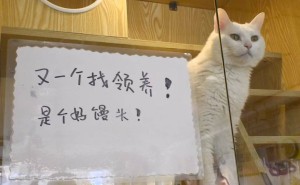 又一个找领养!
是个奶馒头!